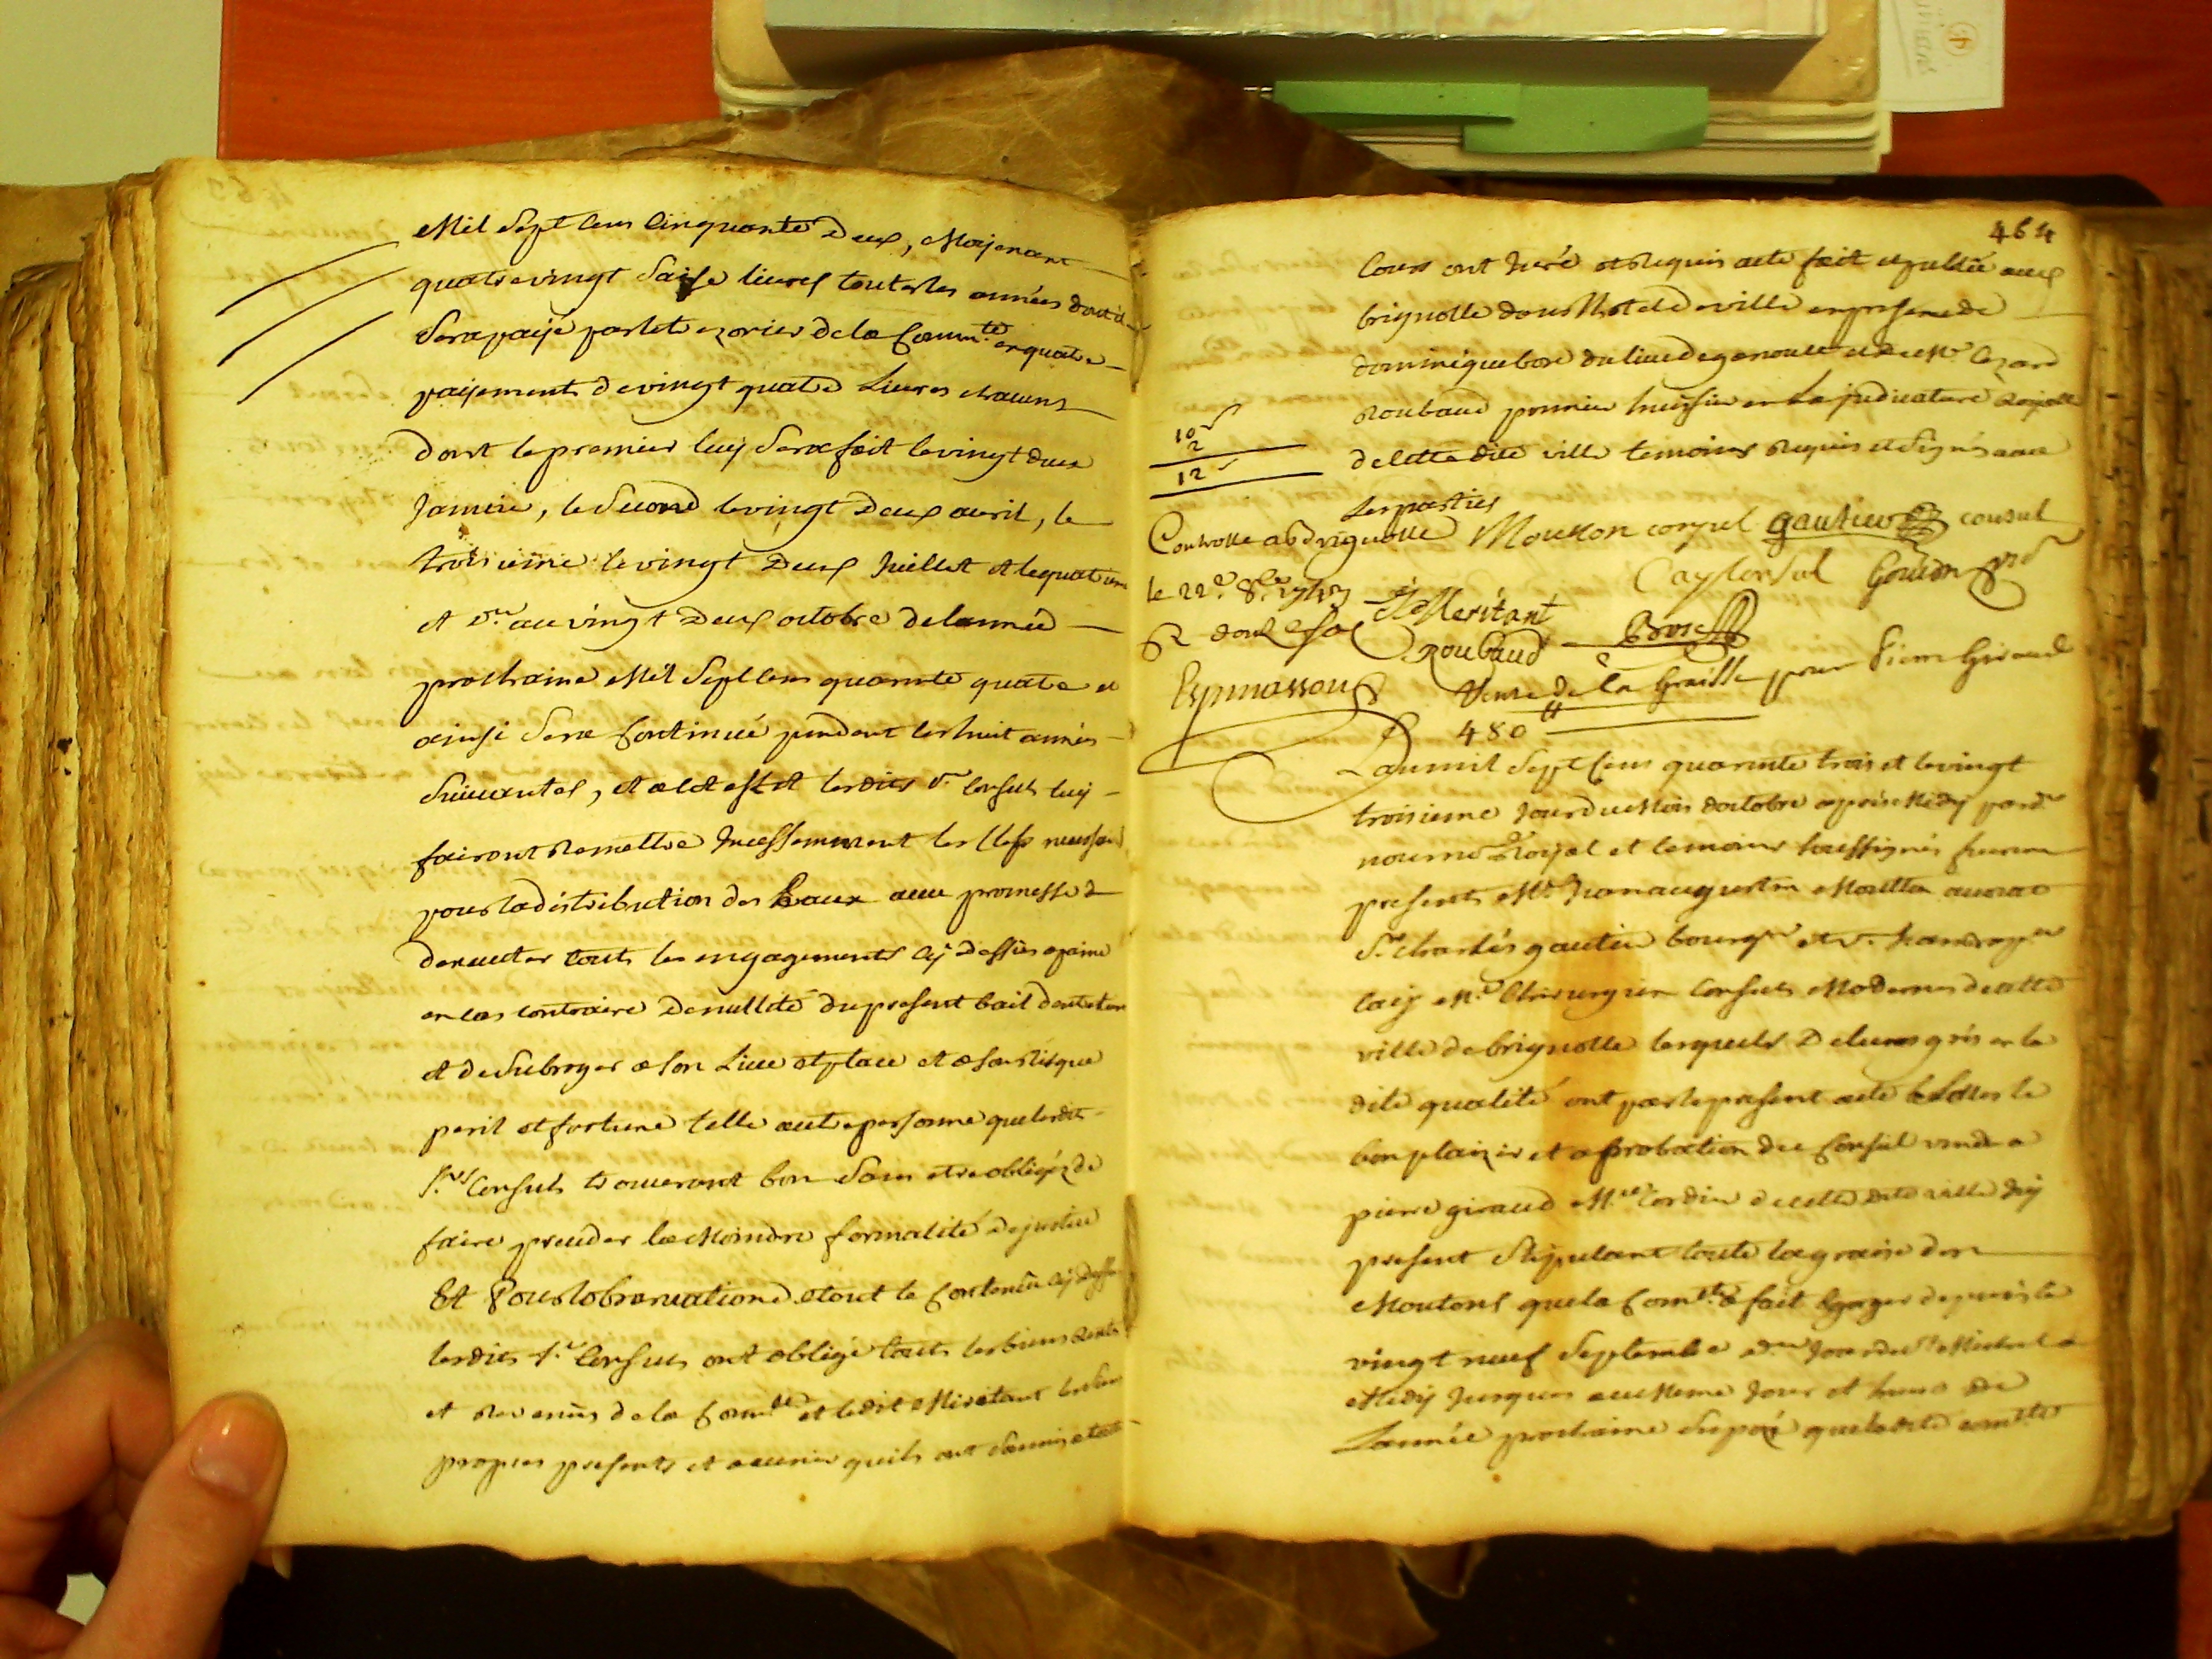 Mil Sept Cens Cinquante Deux, Moyenant
quatrevingt Saise livres toutes les années dont il
Sera payé par le trezorier de la Comm.té en quatre
payements de vingt quatre Livres chacuns
dont le premier luy Sera fait le vingt deux
Janvier, le Second le vingt Deux avril, le
troisieme le vingt Deux Juillet et le quatrieme
et d.er au vingt Deux octobre de lannée
prochaine Mil Sept Cens quarante quatre et
ainsi Sera Continué pendant les huit années
Suivantes, et a cet effet lesdits Srs Consuls luy
fairont Remettre Incessemment les Clefs necessaires
pour la distribution des Eaux avec promesse
dexecuter touts les engagements cy dessus a peine
en cas contraire De nullité du present bail
et de Subroger a son Lieu et place et a son Risque
peril et fortune telle autre personne que lesdits
S.rs Consuls trouveront bon Sans etre obligés de
faire prendre la Moindre formalité de justice
Et Pour lobservation de tout le Contenu cy dessus
lesdits S.rs Consuls ont obligé touts les biens Rentes
et Revenus de la Comm.té et ledit Meritant les biens
propres presents et a venir quils ont Soumis a toutes
464
Cours ont Juré et Requis acte fait et publié audit
brignolle dans lhotel de ville en presence de
dominique bore du lieu de et de M.e Cezard
Roubaud premier huissier en la judicature Royalle
de cette dite ville temoins Requis et Signés avec
Les parties
10 s
2
12 s
Controllé a Brignolle
le 22.e 8.bre 1743
R douze s
Mouston consul gautier consul
Cay Consul Gouion
Meritant
Roubaud Bore
Espinassou
Vente de la Graisse pour Pierre Giraud
480 ₶
Lan mil Sept Cens quarante trois et le vingt
troisieme Jour du Mois doctobre apres Midy pard.t
nous no.re Royal et temoins Soussignés furent
presents M.e Jean augustin Moutton avocat
S.r Charles gautier bourg.s et S.r
Cay M.e Chirurgien Consuls Modernes de cette
ville de brignolle lesquels De leurs grés en la
dite qualité ont par le present acte
bon plaizir et aprobation du Conseil vendu a
pierre giraud M.e Cordier de cette dite ville Icy
present Stipulant toute la graisse des
Moutons que la Com.té a fait Egorger depuis le
vingt neuf Septembre d.er Jour de S.t Michel a
Midy Jusques au Meme Jour et heure de
Lannée prochaine Supozé que ladite com.té